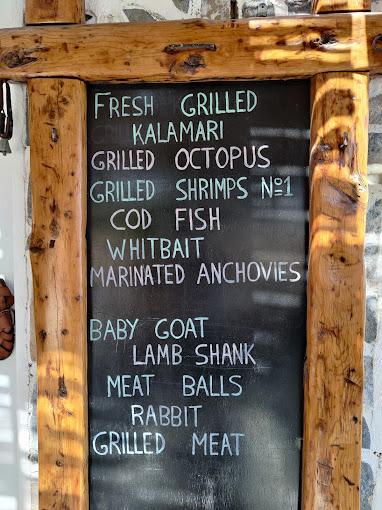 FRESH GRILLED
KALAMARI
GRILLED OCTOPUS
GRILLED SHRIMPS Nº1
COD FISH
WHITBAIT
MARINATED ANCHOVIES
BABY GOAT
LAMB SHANK
MEAT BALLS
RABBIT
GRILLED MEAT